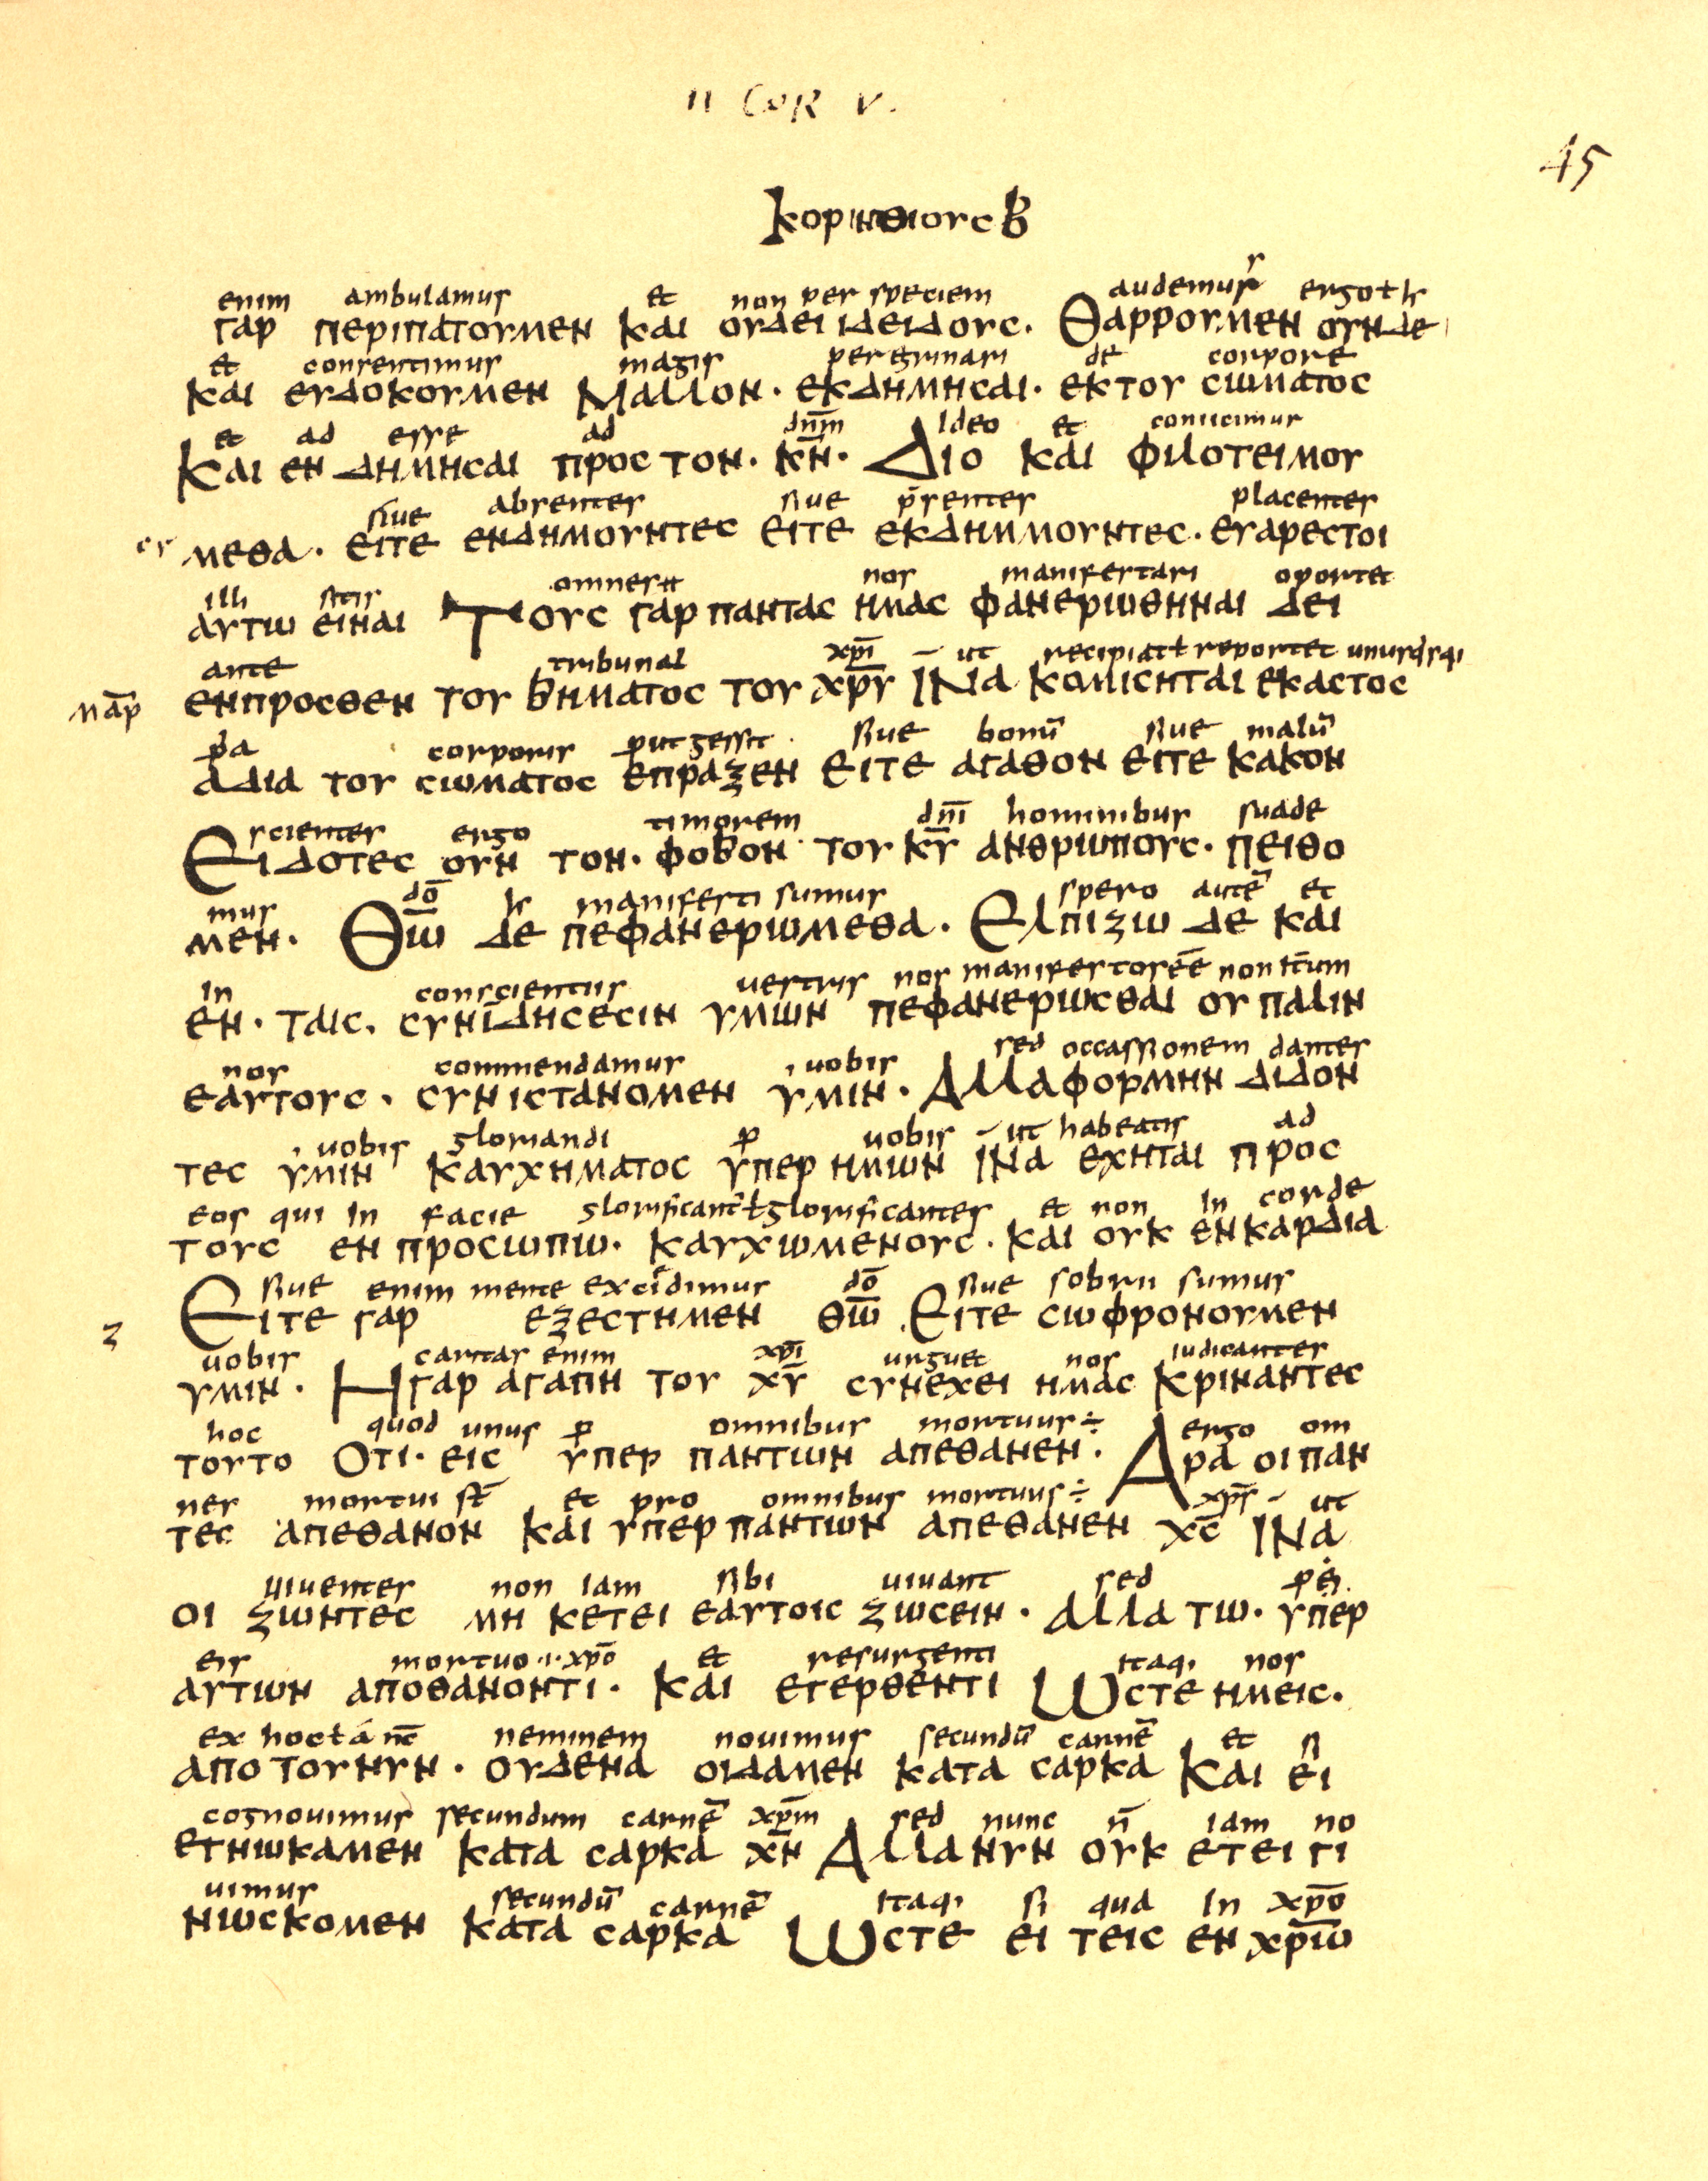 II COR V.
45
κορινθιους β
enim ambulamus et non per speciem audemus ergo ł
γαρ περιπατουμεν και ουδει ιδειδους. Θαρρουμεν ουν δε
et consentimus magis peregrinari de corpore
και ευδοκουμεν Μαλλον. εκδημησαι. εκ του σωματος
et ad esse ad dn̄m Ideo et
και εν δημησαι προς τον. κ̄ν̄. Διο και φιλοτειμου
siue absentes siue p̄sentes placentes
μεθα. ειτε ενδημουντες ειτε εκδημμουντες. ευαρεστοι
illi omnes nos manifestari oportet
αυτω ειναι Τους γαρ παντας ημας φανεριωθηναι δει
ante tribunal xp̄i ut recipiat ł reportet unusqsqi
ενπροσθεν του βηματος του χ̄ρ̄ῡ ΙΝα κομισηται εκαστος
ꝑa corporis put gessit siue bonū siue malū
αδια του σωματος επραξεν Ειτε αγαθον ειτε κακον
scientes ergo timorem dn̄i hominibus suade
Ειδοτες ουν τον. φοβον του κ̄ῡ ανθριωπους. πειθο
mus dō manifesti sumus spero autē et
μεν. Θω̄ δε πεφανεριωμεθα. Ελπιζω δε και
in conscientiis uestris nos manifestos ēē non
εν. ταις. συνιδησεσιν υμων πεφανεριωσθαι ου παλιν
nos commendamus uobis sed occassionem dantes
εαυτους. συνιστανομεν υμιν. Αλλαφορμην διδον
uobis gloriandi ꝑ uobis ut habeatis ad
τες υμιν καυχηματος υπερ ημων ΙΝα εχηται προς
eos qui in facie glorificant ł glorificantes et non in corde
τους εν προσωπω. καυχωμενους. και ουκ εν καρδια
siue enim mente excidimus dō siue sobrii sumus
Ειτε γαρ εξεστημεν θω̄. Ειτε σωφρονουμεν
uobis caritas enim xp̄i urguet nos iudicantes
υμιν. Η γαρ αγαπη του χ̄ῡ συνεχει ημας Κριναντες
hoc quod unus ꝑ omnibus mortuus ÷ ergo om
τουτο Οτι. εις υπερ παντων απεθανεν. Αρα οι παν
nes mortui st̄ et pro omnibus mortuus ÷ xp̄s ut
τες απεθανον και υπερ παντων απεθανεν χ̄ς̄ ΙΝα
uiuentes non iam sibi uiuant sed
οι ζωντες μη κετει εαυτοις ζωσειν. αλλα τω. υπερ
eis mortuo .i. xp̄o et resurgenti itaqi nos
αυτων αποθανοντι. και εγερθεντι Ωστε ημεις.
ex hoc neminem nouimus secundū carnē et si
απο του νυν. ουδενα οιδαμεν κατα σαρκα Και ει
cognouimus secundum carnē xp̄m sed nunc n̄ iam no
εγνωκαμεν κατα σαρκα χ̄ν̄ Αλλα νυν ουκ ετει γι
uimus secundū carnē itaqi si qua in xp̄o
νωσκομεν κατα σαρκα Ωστε ει τεις εν χρ̄ω̄